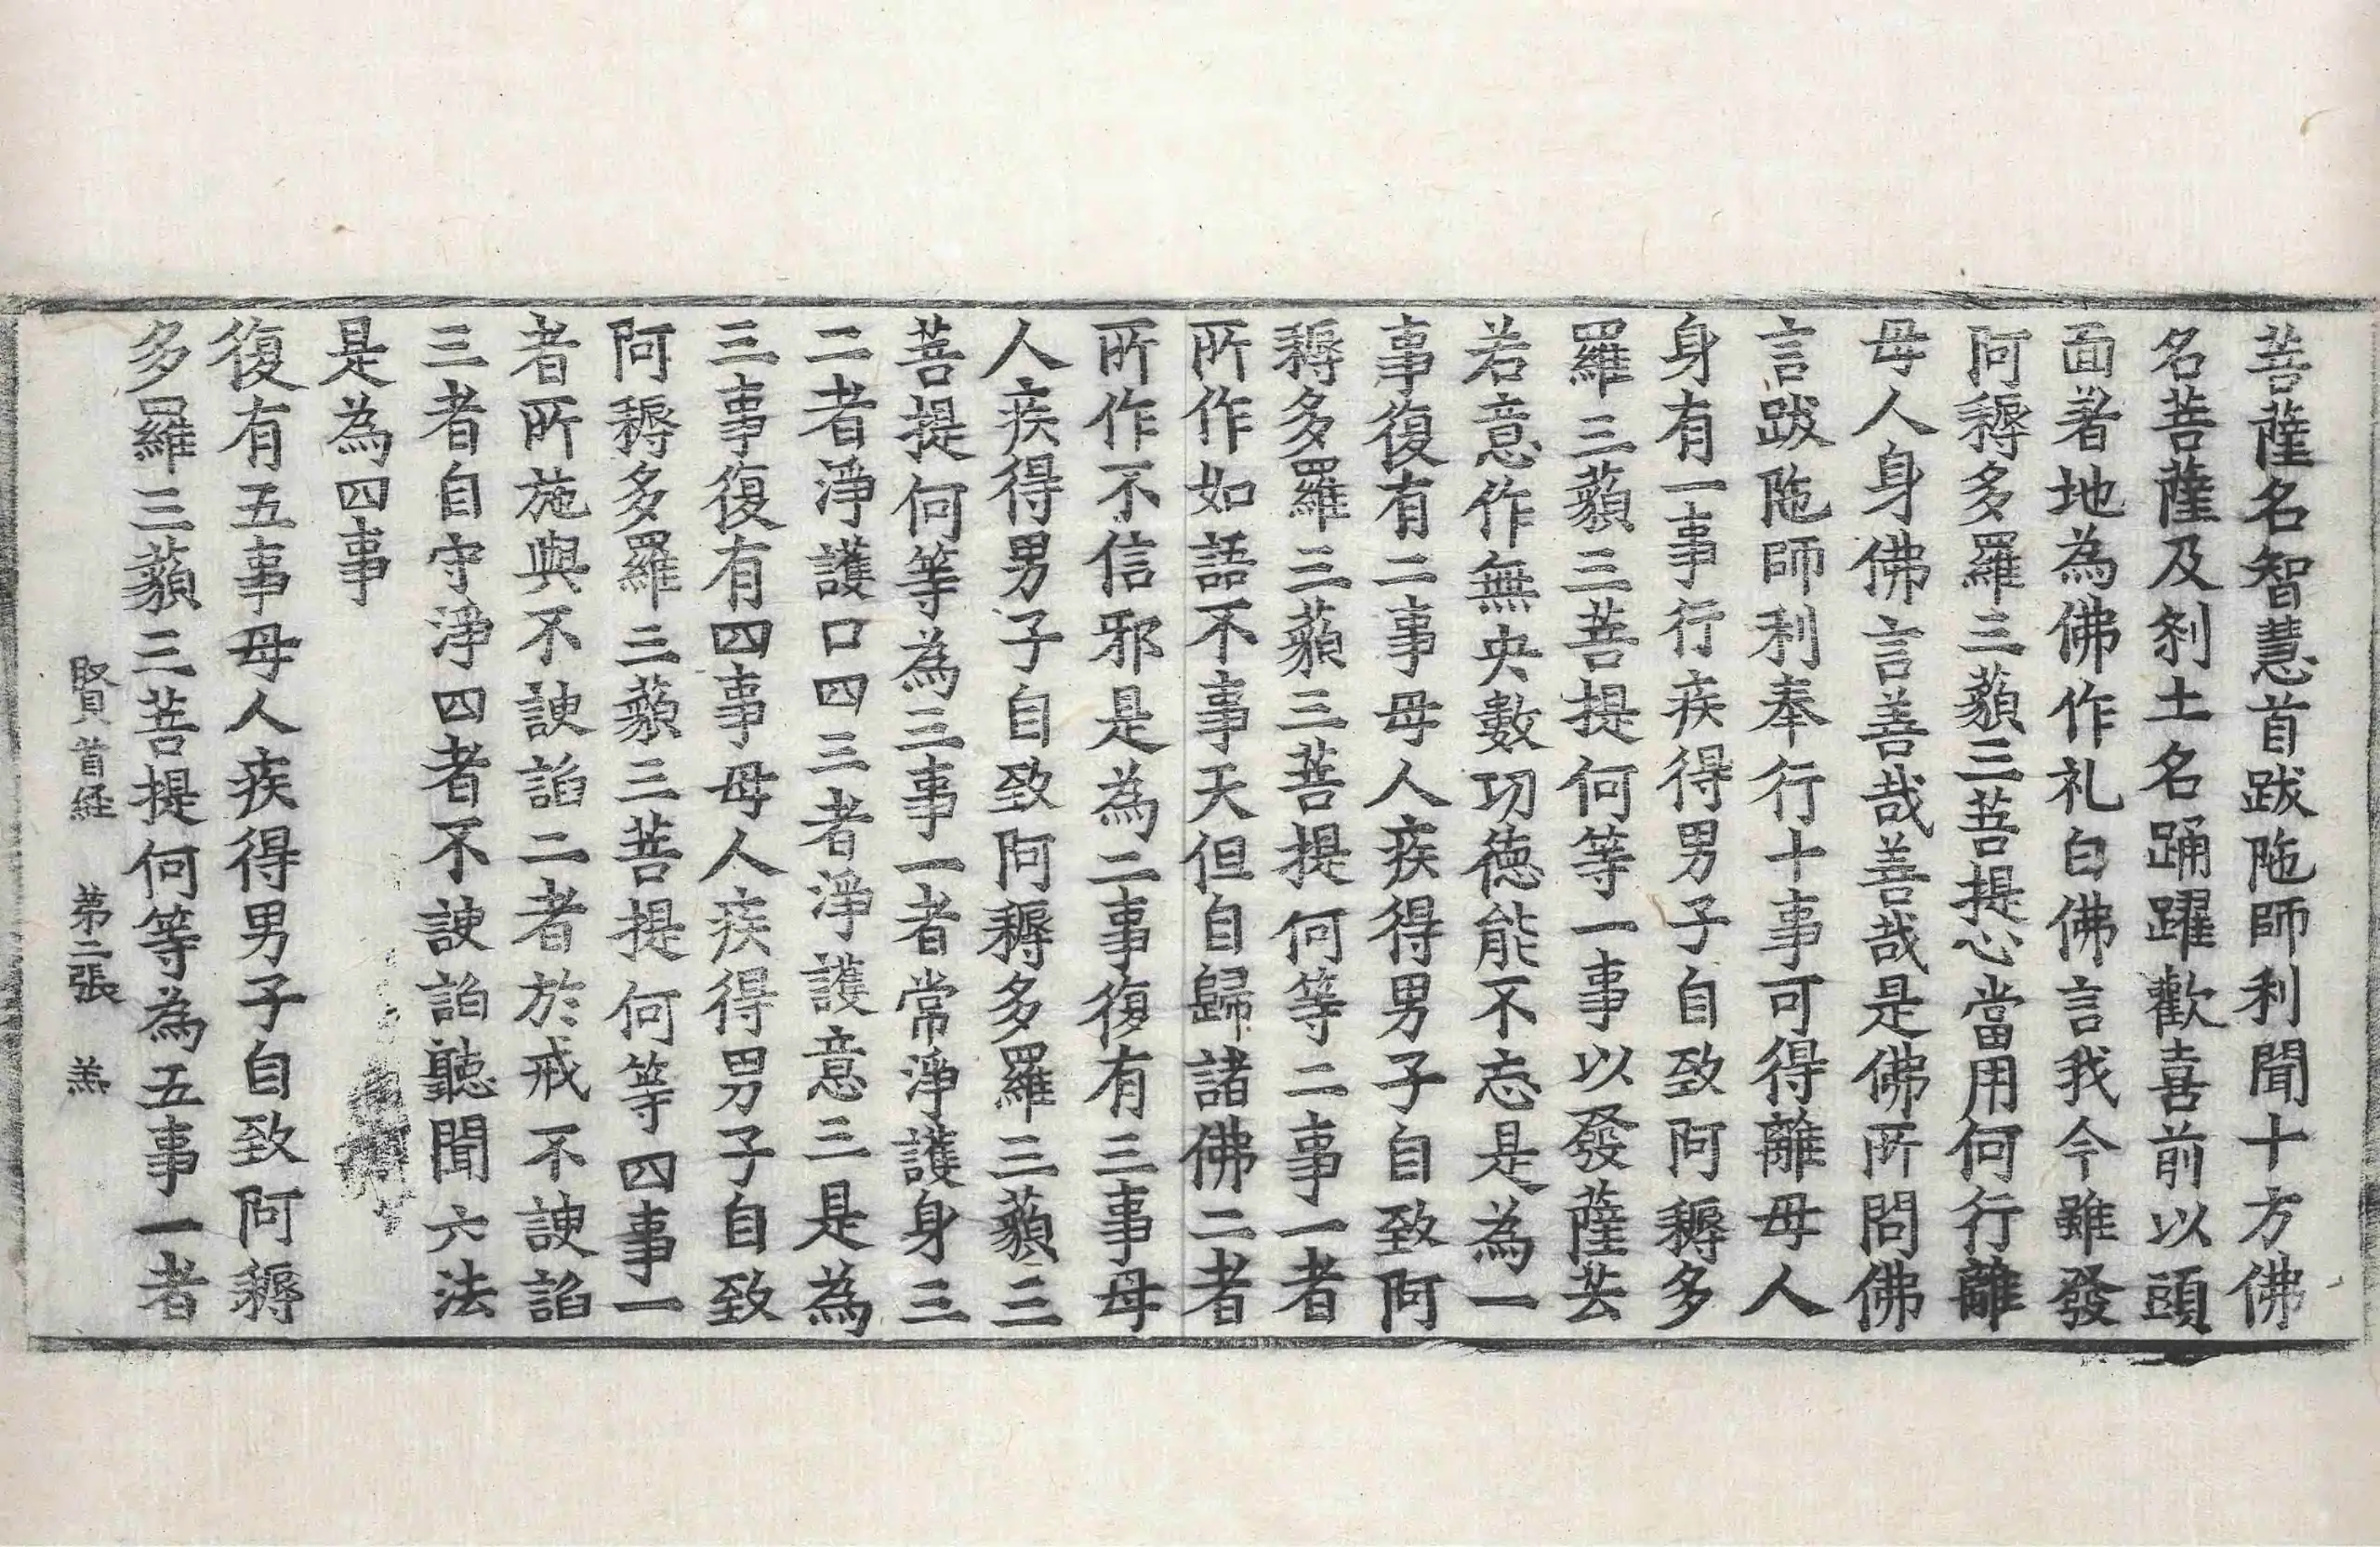 菩薩名智慧首跋陁師利聞十方佛
名菩薩及刹土名踊躍歡喜前以頭
面著地為佛作礼白佛言我今雖發
阿耨多羅三藐三菩提心當用何行離
母人身佛言善哉善哉是佛所問佛
言跋陁師利奉行十事可得離母人
身有一事行疾得男子自致阿耨多
羅三藐三菩提何等一事以發薩芸
若意作無央數功德能不忘是為一
事復有二事母人疾得男子自致阿
耨多羅三藐三菩提何等二事一者
所作如語不事天但自歸諸佛二者
所作不信邪是為二事復有三事母
人疾得男子自致阿耨多羅三藐三
菩提何等為三事一者常淨護身三
二者淨護口四三者淨護意三是為
三事復有四事母人疾得男子自致
阿耨多羅三藐三菩提何等四事一
者所施與不諛諂二者於戒不諛諂
三者自守淨四者不諛諂聽聞六法
是為四事
復有五事母人疾得男子自致阿耨
多羅三藐三菩提何等為五事一者
賢首経 第二張 羔